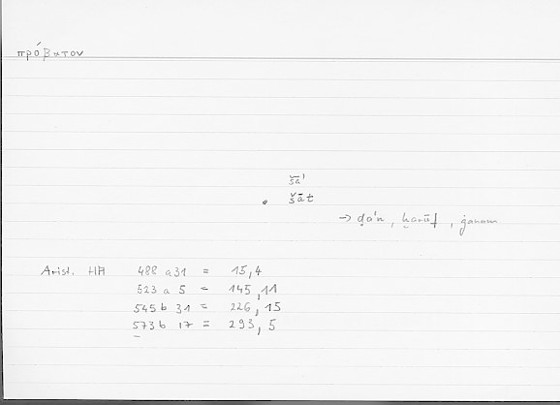 πρόβατον
šāʾ
• šāt
→ ḍaʾn, ḫarūf, ġanam
Arist. HA 488 a 31 = 15,4
523 a 5 = 145,11
545 b 31 = 226,15
573 b 17 = 293,5